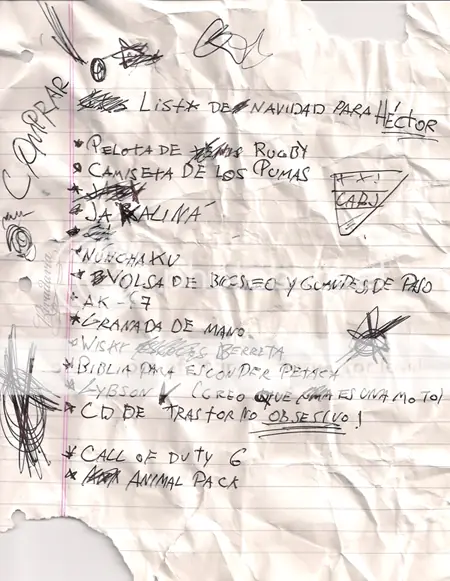 COMPRAR
LISTA DE NAVIDAD PARA HÉCTOR
* PELOTA DE RUGBY
* CAMISETA DE LOS PUMAS
* JABALINA
CABJ
* NUNCHAKU
* VOLSA DE BOXEO Y GUANTES, DE PASO
* AK-47
* GRANADA DE MANO
* WISKY BERRETA
* BIBLIA PARA ESCONDER PETACA
(CREO QUE ES UNA MOTO)
* CD DE TRASTORNO OBSESIVO!
* CALL OF DUTY 6
* ANIMAL PACK